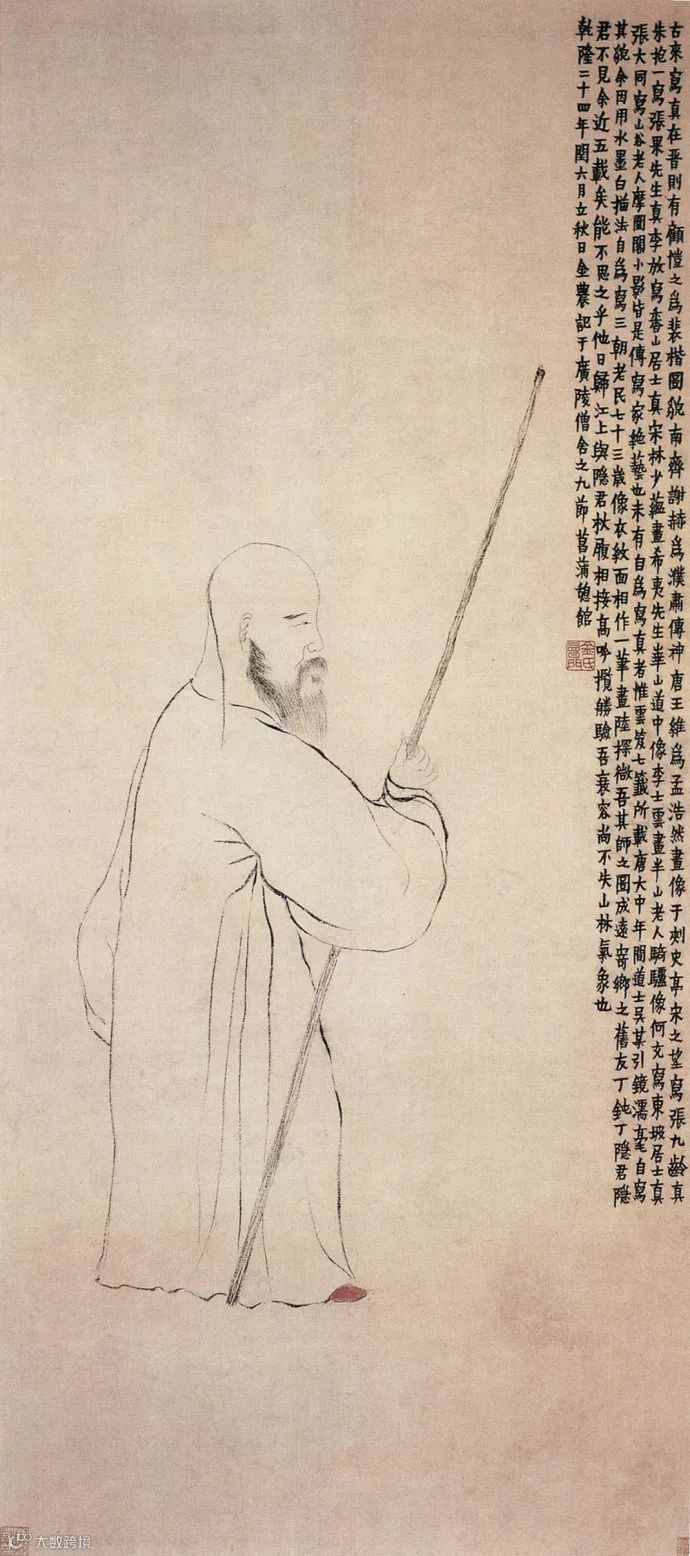 古來寫真在晉則有顧愷之爲裴楷圖貌南齊謝赫爲濮肅傳神唐王維爲孟浩然畫像于刺史亭宋之望寫張九齡真
朱抱一寫張果先生真李放寫香山居士真宋林少蘊畫希夷先生華山道中像李士雲畫半山老人騎驢像何充寫東坡居士真
張大同寫山谷老人摩圍閣小影皆是傳寫家絕藝也未有自爲寫真者惟雲笈七籤所載唐大中年間道士吳某引鏡濡毫自寫
其貌余因用水墨白描法自爲寫三朝老民七十三歲像衣紋面相作一筆畫陸探微吾其師之圖成遠寄鄉之舊友丁鈍丁隱君隱
君不見余近五載矣能不思之乎他日歸江上與隱君杖履相接高吟攬勝驗吾衰容尚不失山林氣象也
乾隆二十四年閏六月立秋日金農記于廣陵僧舍之九節菖蒲憩館
金氏壽門
大数跨境